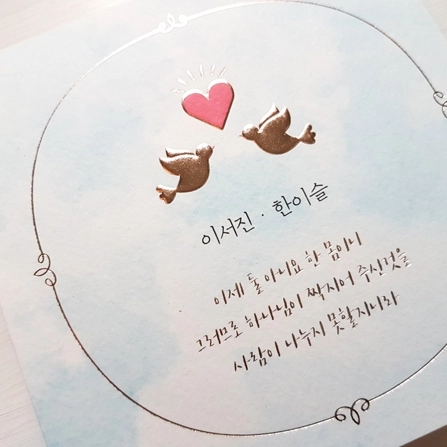 이서진 · 한이슬
이제 둘 아니요 한 몸이니
그러므로 하나님이 짝지어 주신것을
사람이 나누지 못할지니라